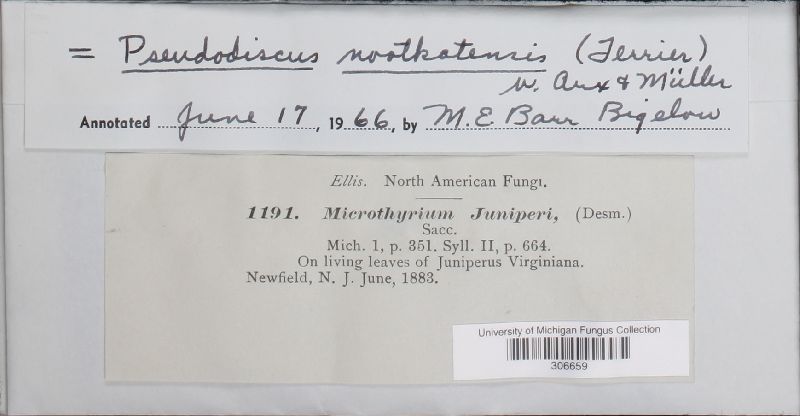 = Pseudodiscus nootkatensis (Terrier)
v. Arx & Müller
Annotated June 17, 1966, by M. E. Barr Bigelow
Ellis. North American Fungi.
1191. Microthyrium Juniperi, (Desm.)
Sacc.
Mich. 1, p. 351. Syll. II, p. 664.
On living leaves of Juniperus Virginiana.
Newfield, N. J. June, 1883.
University of Michigan Fungus Collection
306659